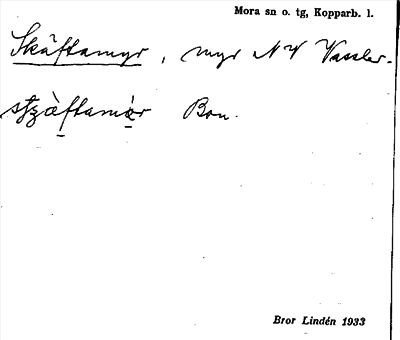 Mora sn o. tg, Kopparb. l.
Skäftamyr, myr NV Vassler-
Bon.
Bror Lindén 1933